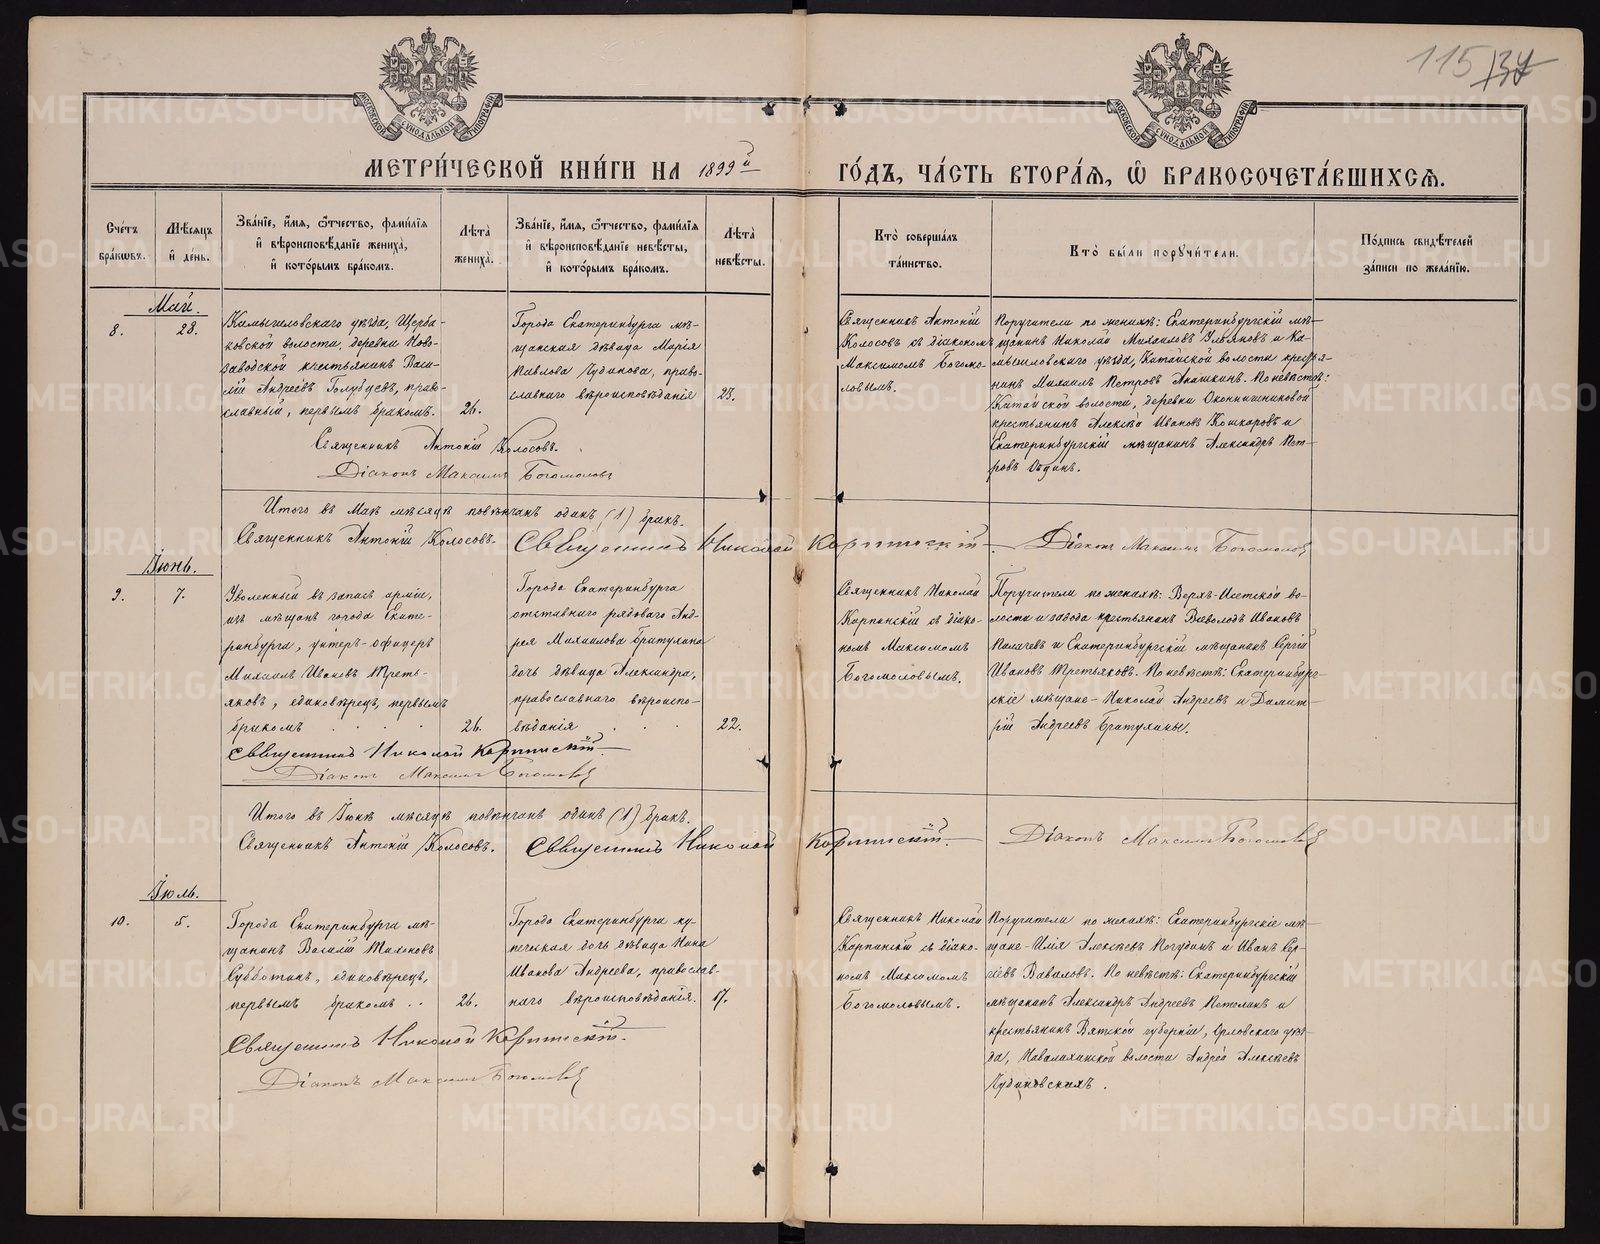 115
МЕТРИ́ЧЕСКОЙ КНИ́ГИ НА 1899й ГО́ДЪ, ЧА́СТЬ ВТОРА́Я, Ѽ БРАКОСОЧЕТА́ВШИХСЯ.
Сче́тъ бра́кѡвъ.
Мѣ́сяцъ и҆ де́нь.
Зва́нїе, и҆́мя, ѻ҆́тчество, фами́лїя и҆ вѣроисповѣ́данїе жениха̀, и҆ кото́рымъ бра́комъ.
Лѣ́та жениха̀.
Зва́нїе, и҆́мя, ѻ҆́тчество, фами́лїя и҆ вѣроисповѣ́данїе невѣ́сты, и҆ кото́рымъ бра́комъ.
Лѣ́та невѣ́сты.
Кто̀ соверша́лъ та́инство.
Кто̀ бы́ли поручи́тели.
По́дпись свидѣ́телей за́писи по жела́нїю.
Май.
8.
28.
Камышловскаго уѣзда, Щерба-
ковской волости, деревни Ново-
заводской крестьянинъ Васи-
лій Андреевъ Голубцевъ, право-
славный, первымъ бракомъ.
26.
Города Екатеринбурга мѣ-
щанская дѣвица Марія
Павлова, право-
славнаго вѣроисповѣданія
23.
Священникъ Антоній
Колосовъ съ діакономъ
Максимомъ Богомо-
ловымъ.
Поручители по женихѣ: Екатеринбургскій мѣ-
щанинъ Николай Михаиловъ Ульяновъ и Ка-
мышловскаго уѣзда, Китайской волости крестья-
нинъ Михаилъ Петровъ. По невѣстѣ:
Китайской волости, деревни Оконишниковой
крестьянинъ Алексѣй Ивановъ Кошкаровъ и
Екатеринбургскій мѣщанинъ Александръ Пет-
ровъ
Священникъ Антоній Колосовъ.
Діаконъ Максимъ Богомоловъ
Итого въ Маѣ мѣсяцѣ повѣнчанъ одинъ (1) бракъ.
Священникъ Антоній Колосовъ. Священникъ Николай Карпинскій. Діаконъ Максимъ Богомоловъ
Іюнь.
9.
7.
Уволенный въ запасъ арміи,
изъ мѣщанъ города Екате-
ринбурга, унтеръ-офицеръ
Михаилъ Ивановъ Треть-
яковъ, единовѣрецъ, первымъ
бракомъ
26.
Города Екатеринбурга
отставнаго рядоваго Анд-
рея Михаилова Братухина
дочь дѣвица Александра,
православнаго вѣроиспо-
вѣданія
22.
Священникъ Николай
Карпинскій съ діако-
номъ Максимомъ
Богомоловымъ.
Поручители по женихѣ: Верхъ-Исетской во-
лости и завода крестьянинъ Всеволодъ Ивановъ
Палачевъ и Екатеринбургскій мѣщанинъ Сергій
Ивановъ Третьяковъ. По невѣстѣ: Екатеринбург-
скіе мѣщане – Николай Андреевъ и Димит-
рій Андреевъ Братухины.
Священникъ Николай Карпинскій.
Діаконъ Максимъ Богомоловъ
Итого въ Іюнѣ мѣсяцѣ повѣнчанъ одинъ (1) бракъ.
Священникъ Антоній Колосовъ. Священникъ Николай Карпинскій. Діаконъ Максимъ Богомоловъ
Іюль.
10.
5.
Города Екатеринбурга мѣ-
щанинъ Василій Тихоновъ
Субботинъ, единовѣрецъ,
первымъ бракомъ
26.
Города Екатеринбурга ку-
печеская дочь дѣвица Нина
Иванова Андреева, православ-
наго вѣроисповѣданія.
17.
Священникъ Николай
Карпинскій съ діако-
номъ Максимомъ
Богомоловымъ.
Поручители по женихѣ: Екатеринбургскіе мѣ-
щане – Илія Алексѣевъ Погудинъ и Иванъ Сер-
гіевъВаваловъ. По невѣстѣ: Екатеринбургскій
мѣщанинъ Александръ Андреевъ Петелинъ и
крестьянинъ Вятской губерніи, Орловскаго уѣз-
да, волости Андрей Алексѣевъ
Священникъ Николай Карпинскій.
Діаконъ Максимъ Богомоловъ
METRIKI.GASO-URAL.RU